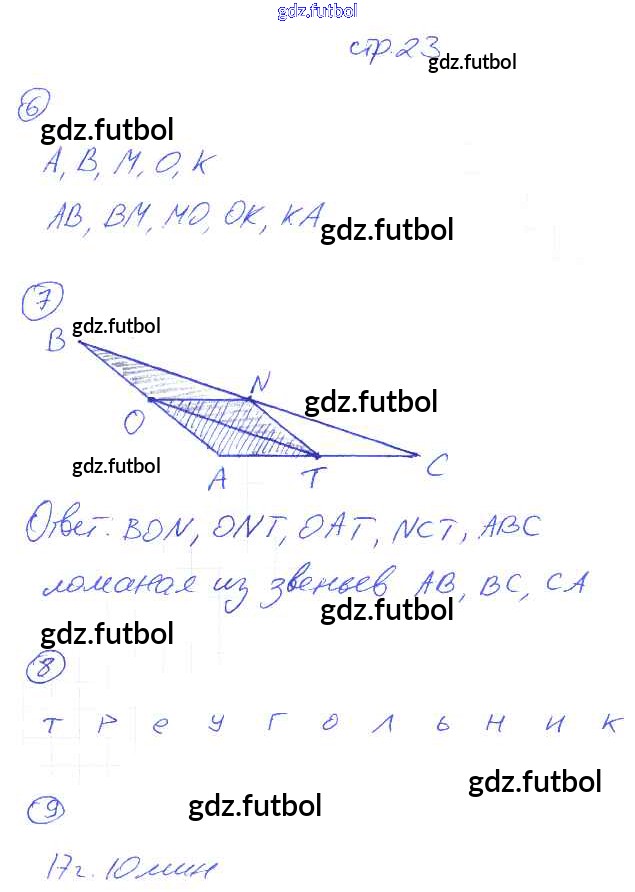 gdz.futbol
стр.23
gdz.futbol
6
gdz.futbol
А, В, М, О, К
АВ, ВМ, МО, ОК, КА
gdz.futbol
7
gdz.futbol
В
N
gdz.futbol
О
gdz.futbol
А
Т
С
Ответ: BON, ONT, OAT, NCT, ABC
ломаная из звеньев АВ, ВС, СА
gdz.futbol
gdz.futbol
8
т р е у г о л ь н и к
gdz.futbol
9
gdz.futbol
17г. 10мин